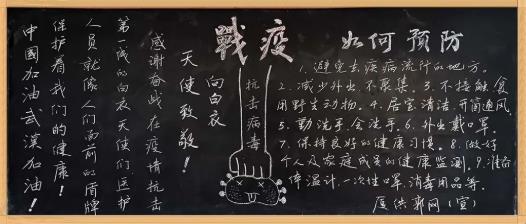 戰疫
向白衣
天使致敬!
感谢奋战在疫情抗击
第一线的白衣天使们,医护
人员就像人们面前的盾牌
保护着我们的健康!
中國加油武漢加油!
抗击病毒
如何预防
1.避免去疾病流行的地方。
2.减少外出.不聚集。3.不接触.食
用野生动物。4.居室清洁.开窗通风
5.勤洗手.会洗手。6.外出戴口罩。
7.保持良好的健康习惯。8.做好
个人及家庭成员的健康监测。9.准备
体温计.一次性口罩.消毒用品等。
(宣)